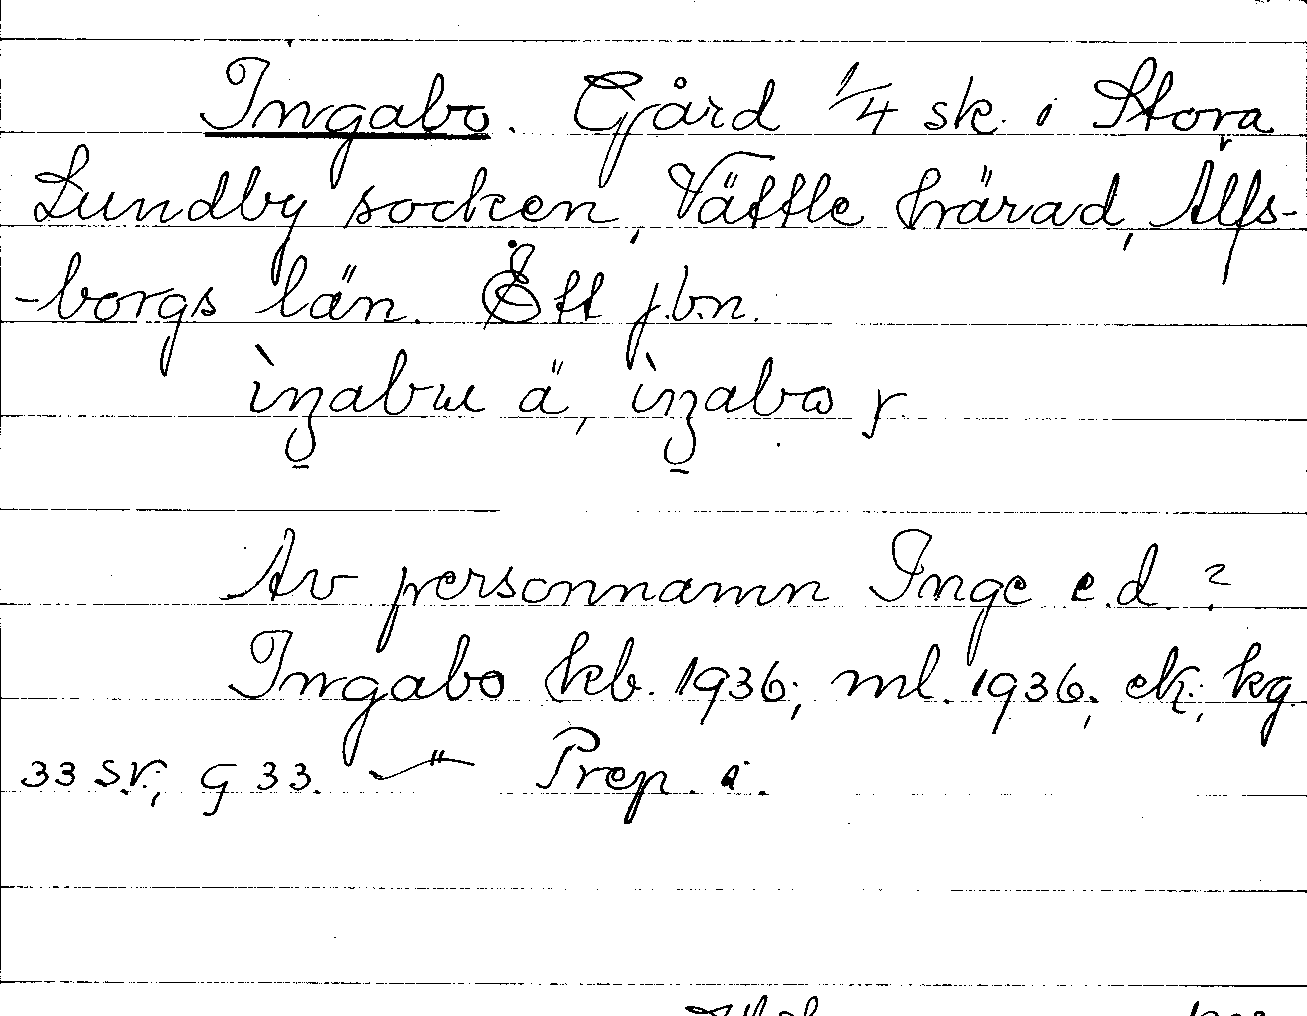 Ingabo. Gård 1/4 sk. i Stora
Lundby socken, Vättle härad, Älfs-
-borgs län. Ett j.b.n.
ä, y
Av personnamn Inge e.d. ?
Ingabo kb. 1936; ml. 1936; ek; kg.
33 SV.; G 33. — " — Prep. i.